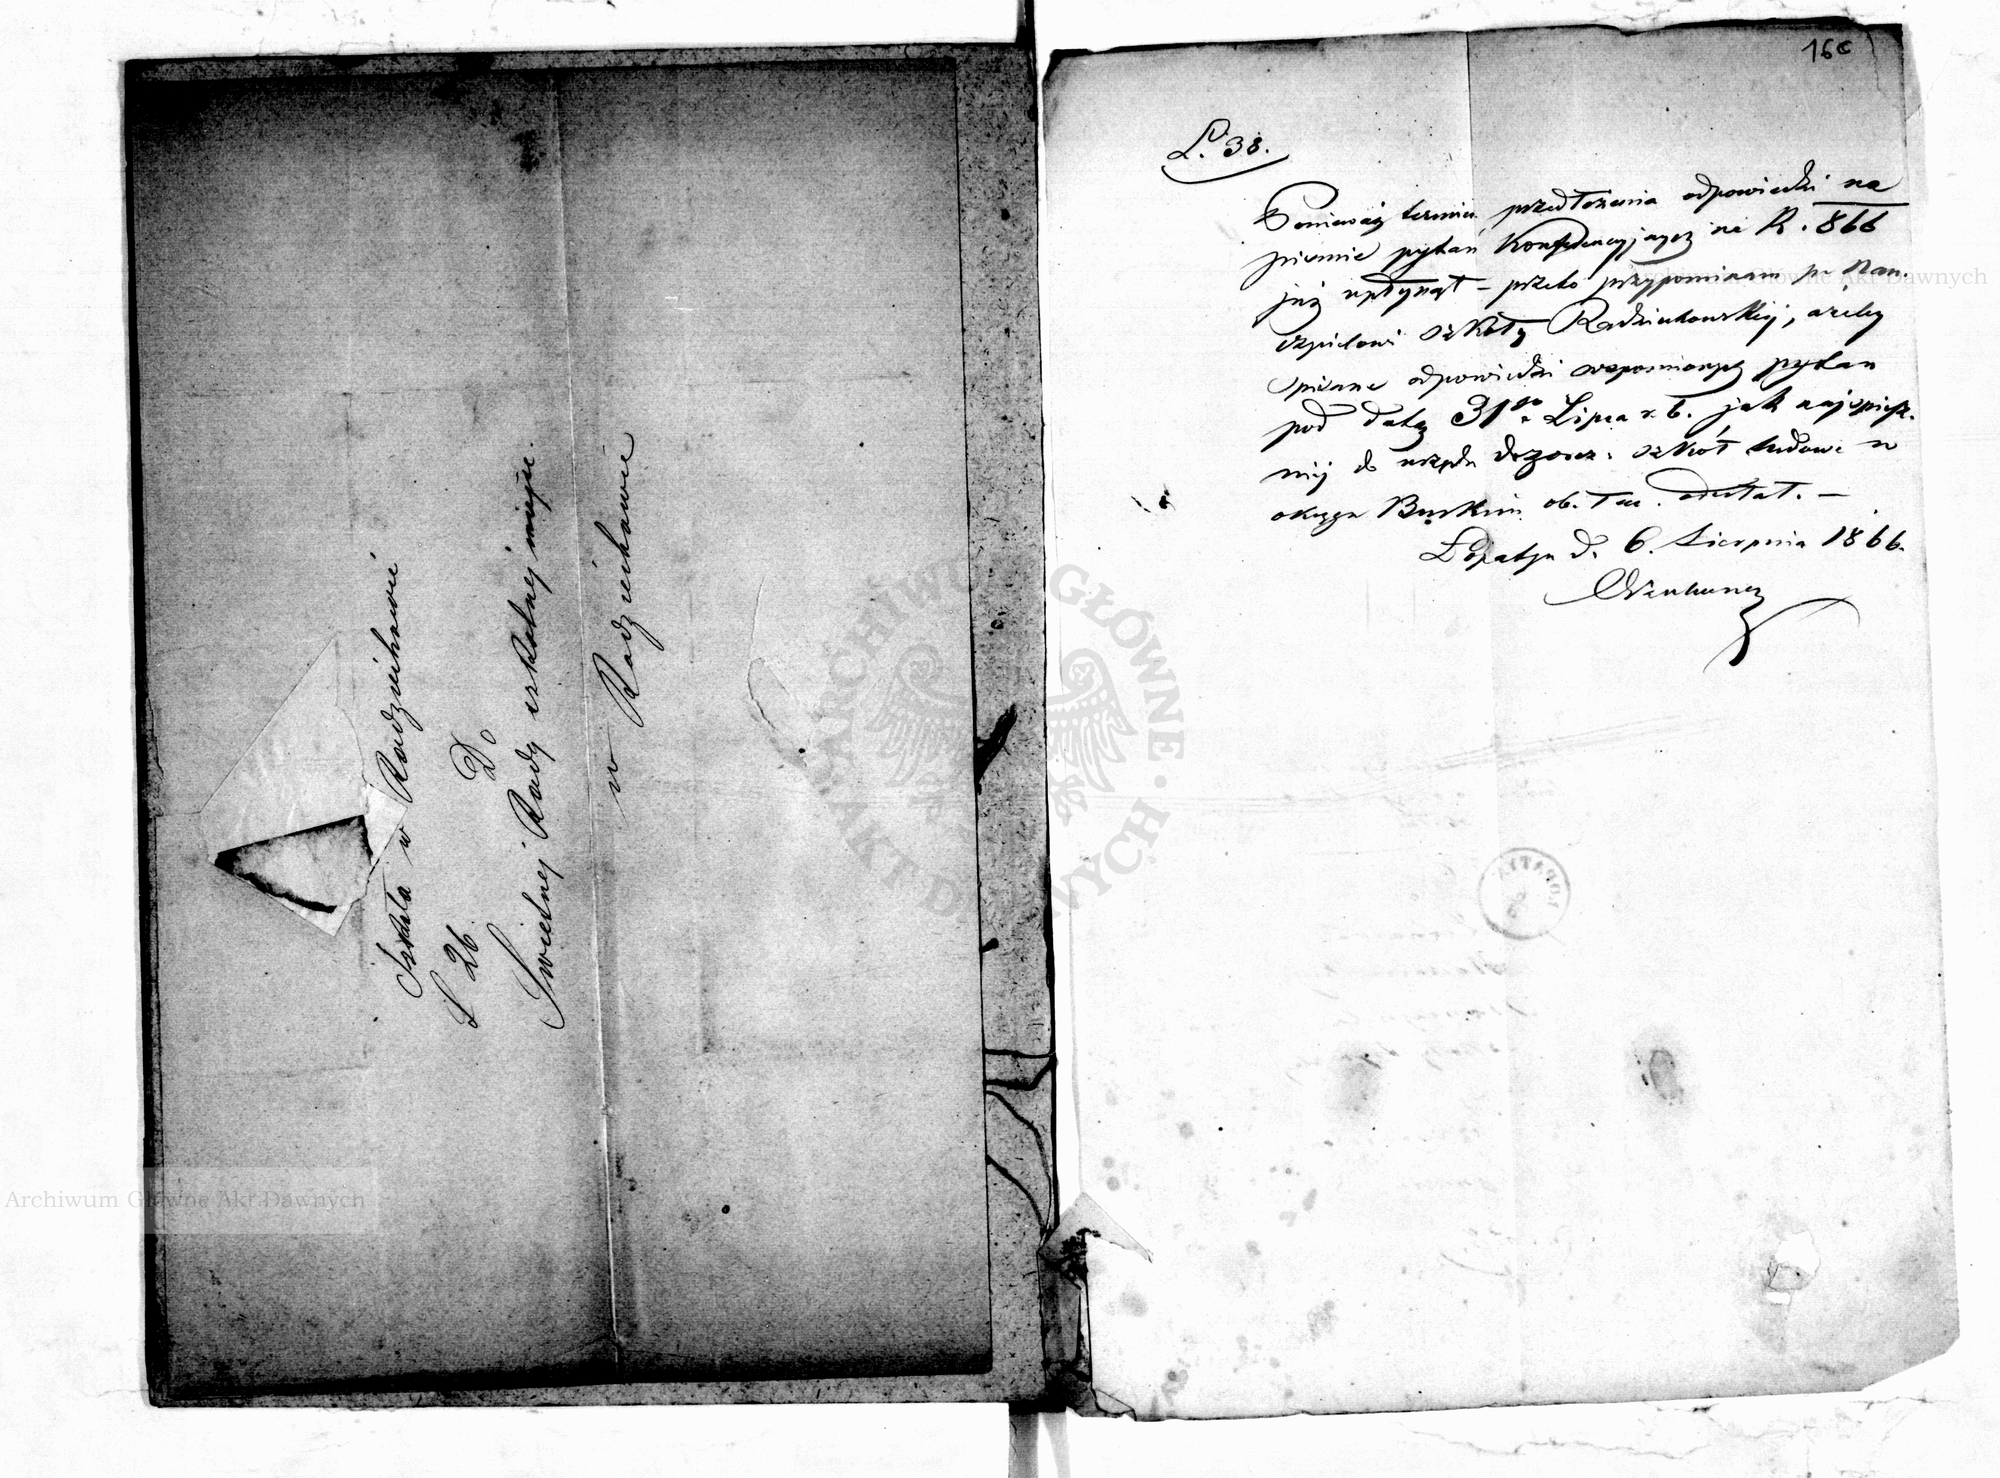 Szkoła w Radziechowie
L 26.
Do
Swietnej Rady szkolnej miejsc.
w Radziechowie
16c
L. 38.
Ponieważ termin przedłożenia odpowiedzi na
piśmie pytań Konferencyjnych na R. 866
już upłynął – przeto przypominam p. Nau-
czycielowi szkoły Radziechowskiej, ażeby
spisane odpowiedzi wspomnionych pytań
pod datą 31go Lipca r. b. jak najspiesz-
niej do urzędu dozorcz. szkół ludow. w
okręgu Buskim ob. łac. odesłał. –
Łopatyn d. 6. Sierpnia 1866.
ŁOPATYN
Archiwum Główne Akt Dawnych
Archiwum Główne Akt Dawnych
ARCHIWUM GŁÓWNE AKT DAWNYCH